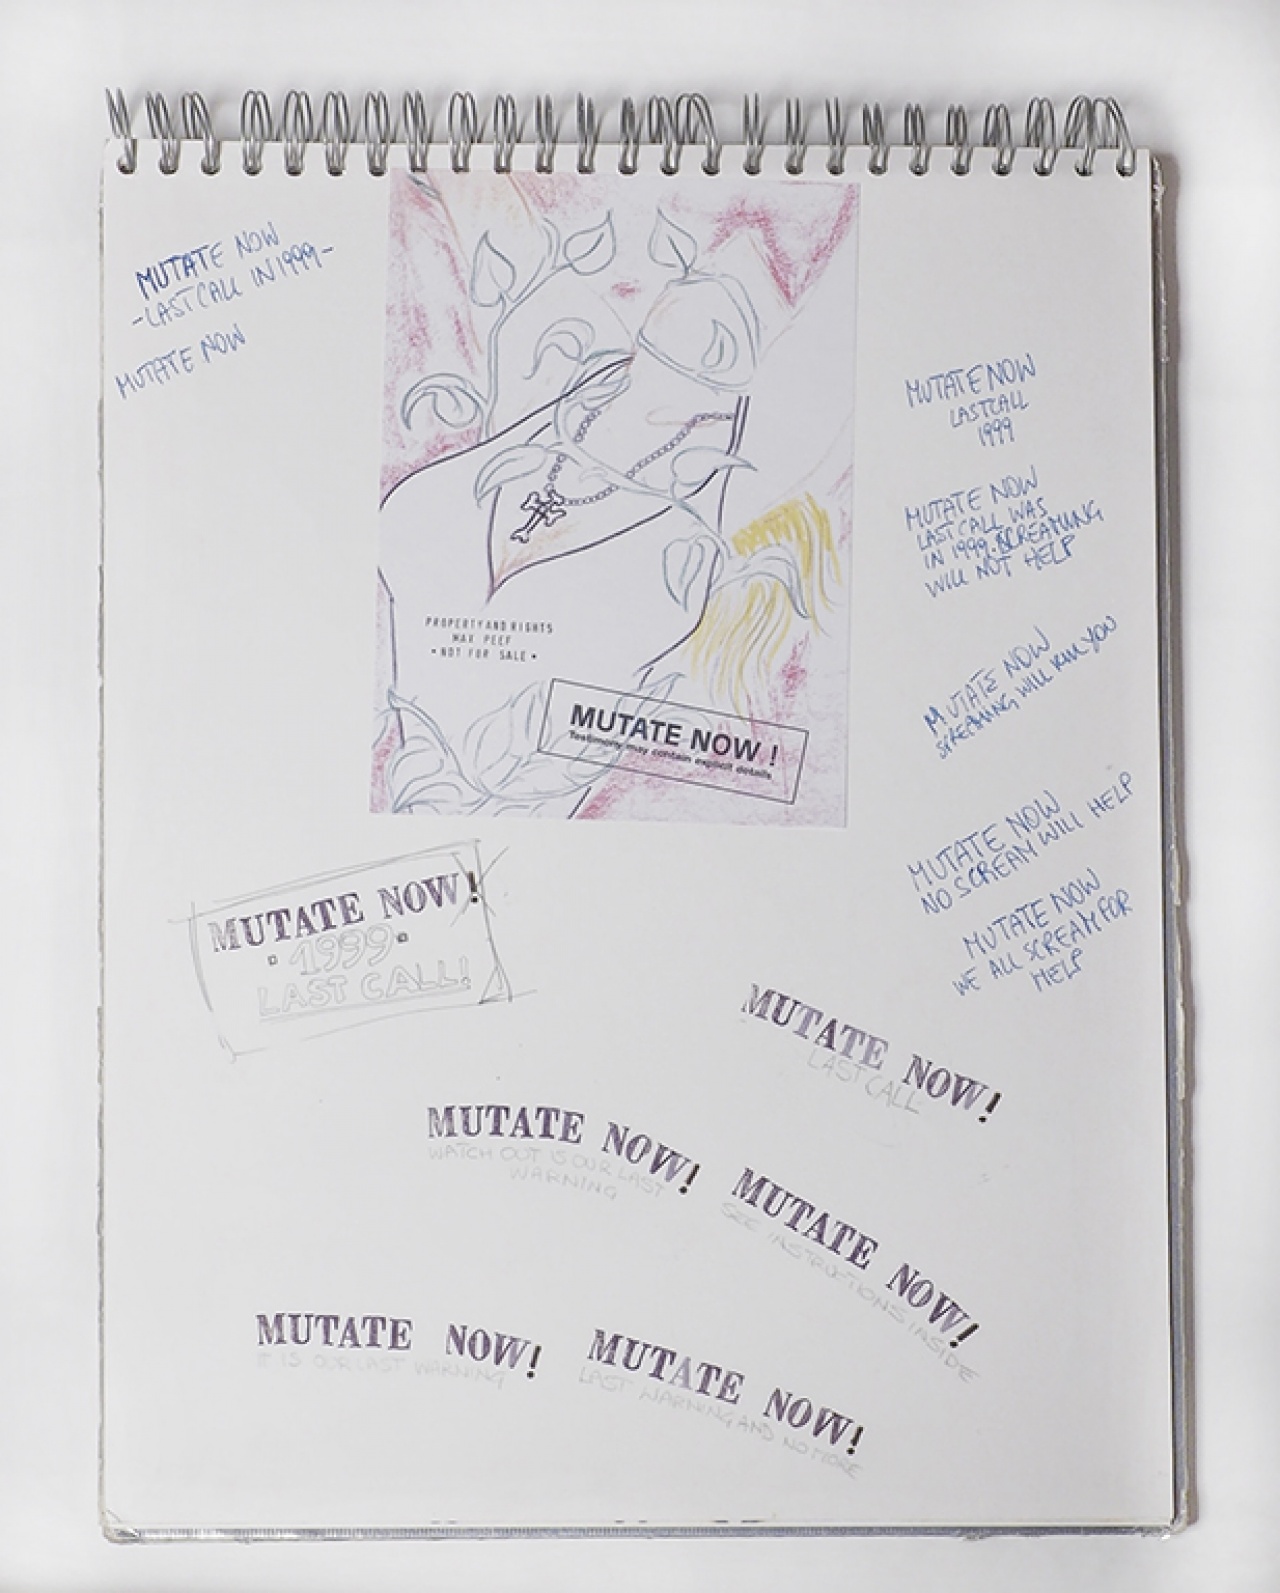 MUTATE NOW
-LAST CALL IN 1999-
MUTATE NOW
PROPERTY AND RIGHTS
MAX PEEF
• NOT FOR SALE •
MUTATE NOW !
Testimony may contain explicit details
MUTATE NOW
LAST CALL
1999
MUTATE NOW
LAST CALL WAS
IN 1999. SCREAMING
WILL NOT HELP
MUTATE NOW
SCREAMING WILL KILL YOU
MUTATE NOW
NO SCREAM WILL HELP
MUTATE NOW
WE ALL SCREAM FOR
HELP
MUTATE NOW!
• 1999 •
LAST CALL!
MUTATE NOW!
LAST CALL
MUTATE NOW!
WATCH OUT IS OUR LAST
WARNING
MUTATE NOW!
SEE INSTRUCTIONS INSIDE
MUTATE NOW!
IT IS OUR LAST WARNING
MUTATE NOW!
LAST WARNING AND NO MORE